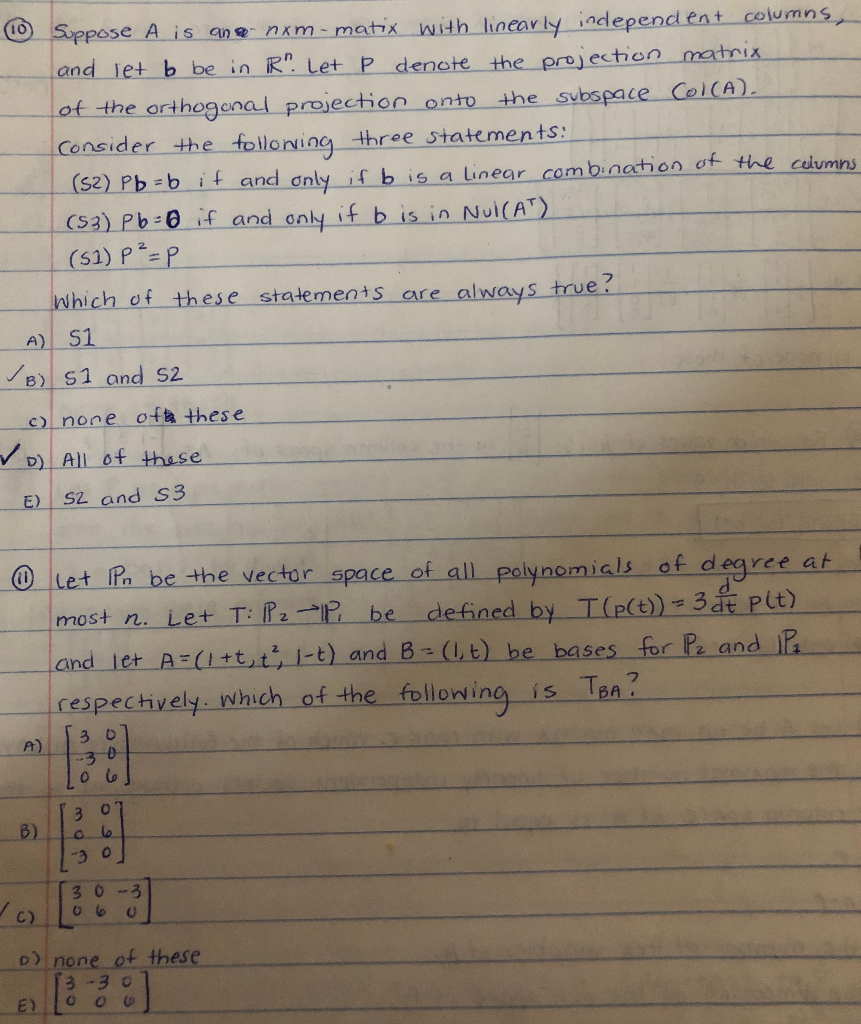 ⑩ Suppose A is an n×m-matix with linearly independent columns,
and let b be in ℝⁿ. Let P denote the projection matrix
of the orthogonal projection onto the subspace Col(A).
Consider the following three statements:
(S2) Pb=b if and only if b is a linear combination of the columns
(S3) Pb=0 if and only if b is in Nul(Aᵀ)
(S1) P²=P
Which of these statements are always true?
A) S1
✓B) S1 and S2
C) none of these
✓D) All of these
E) S2 and S3
⑪ Let ℙn be the vector space of all polynomials of degree at
most n. Let T: ℙ₂→ℙ₁ be defined by T(p(t)) = 3 d/dt p(t)
and let A=(1+t, t², 1-t) and B=(1,t) be bases for ℙ₂ and ℙ₁
respectively. Which of the following is T_BA?
A) [3 0
-3 0
0 6]
B) [3 0
0 6
-3 0]
✓C) [3 0 -3
0 6 0]
D) none of these
E) [3 -3 0
0 0 6]